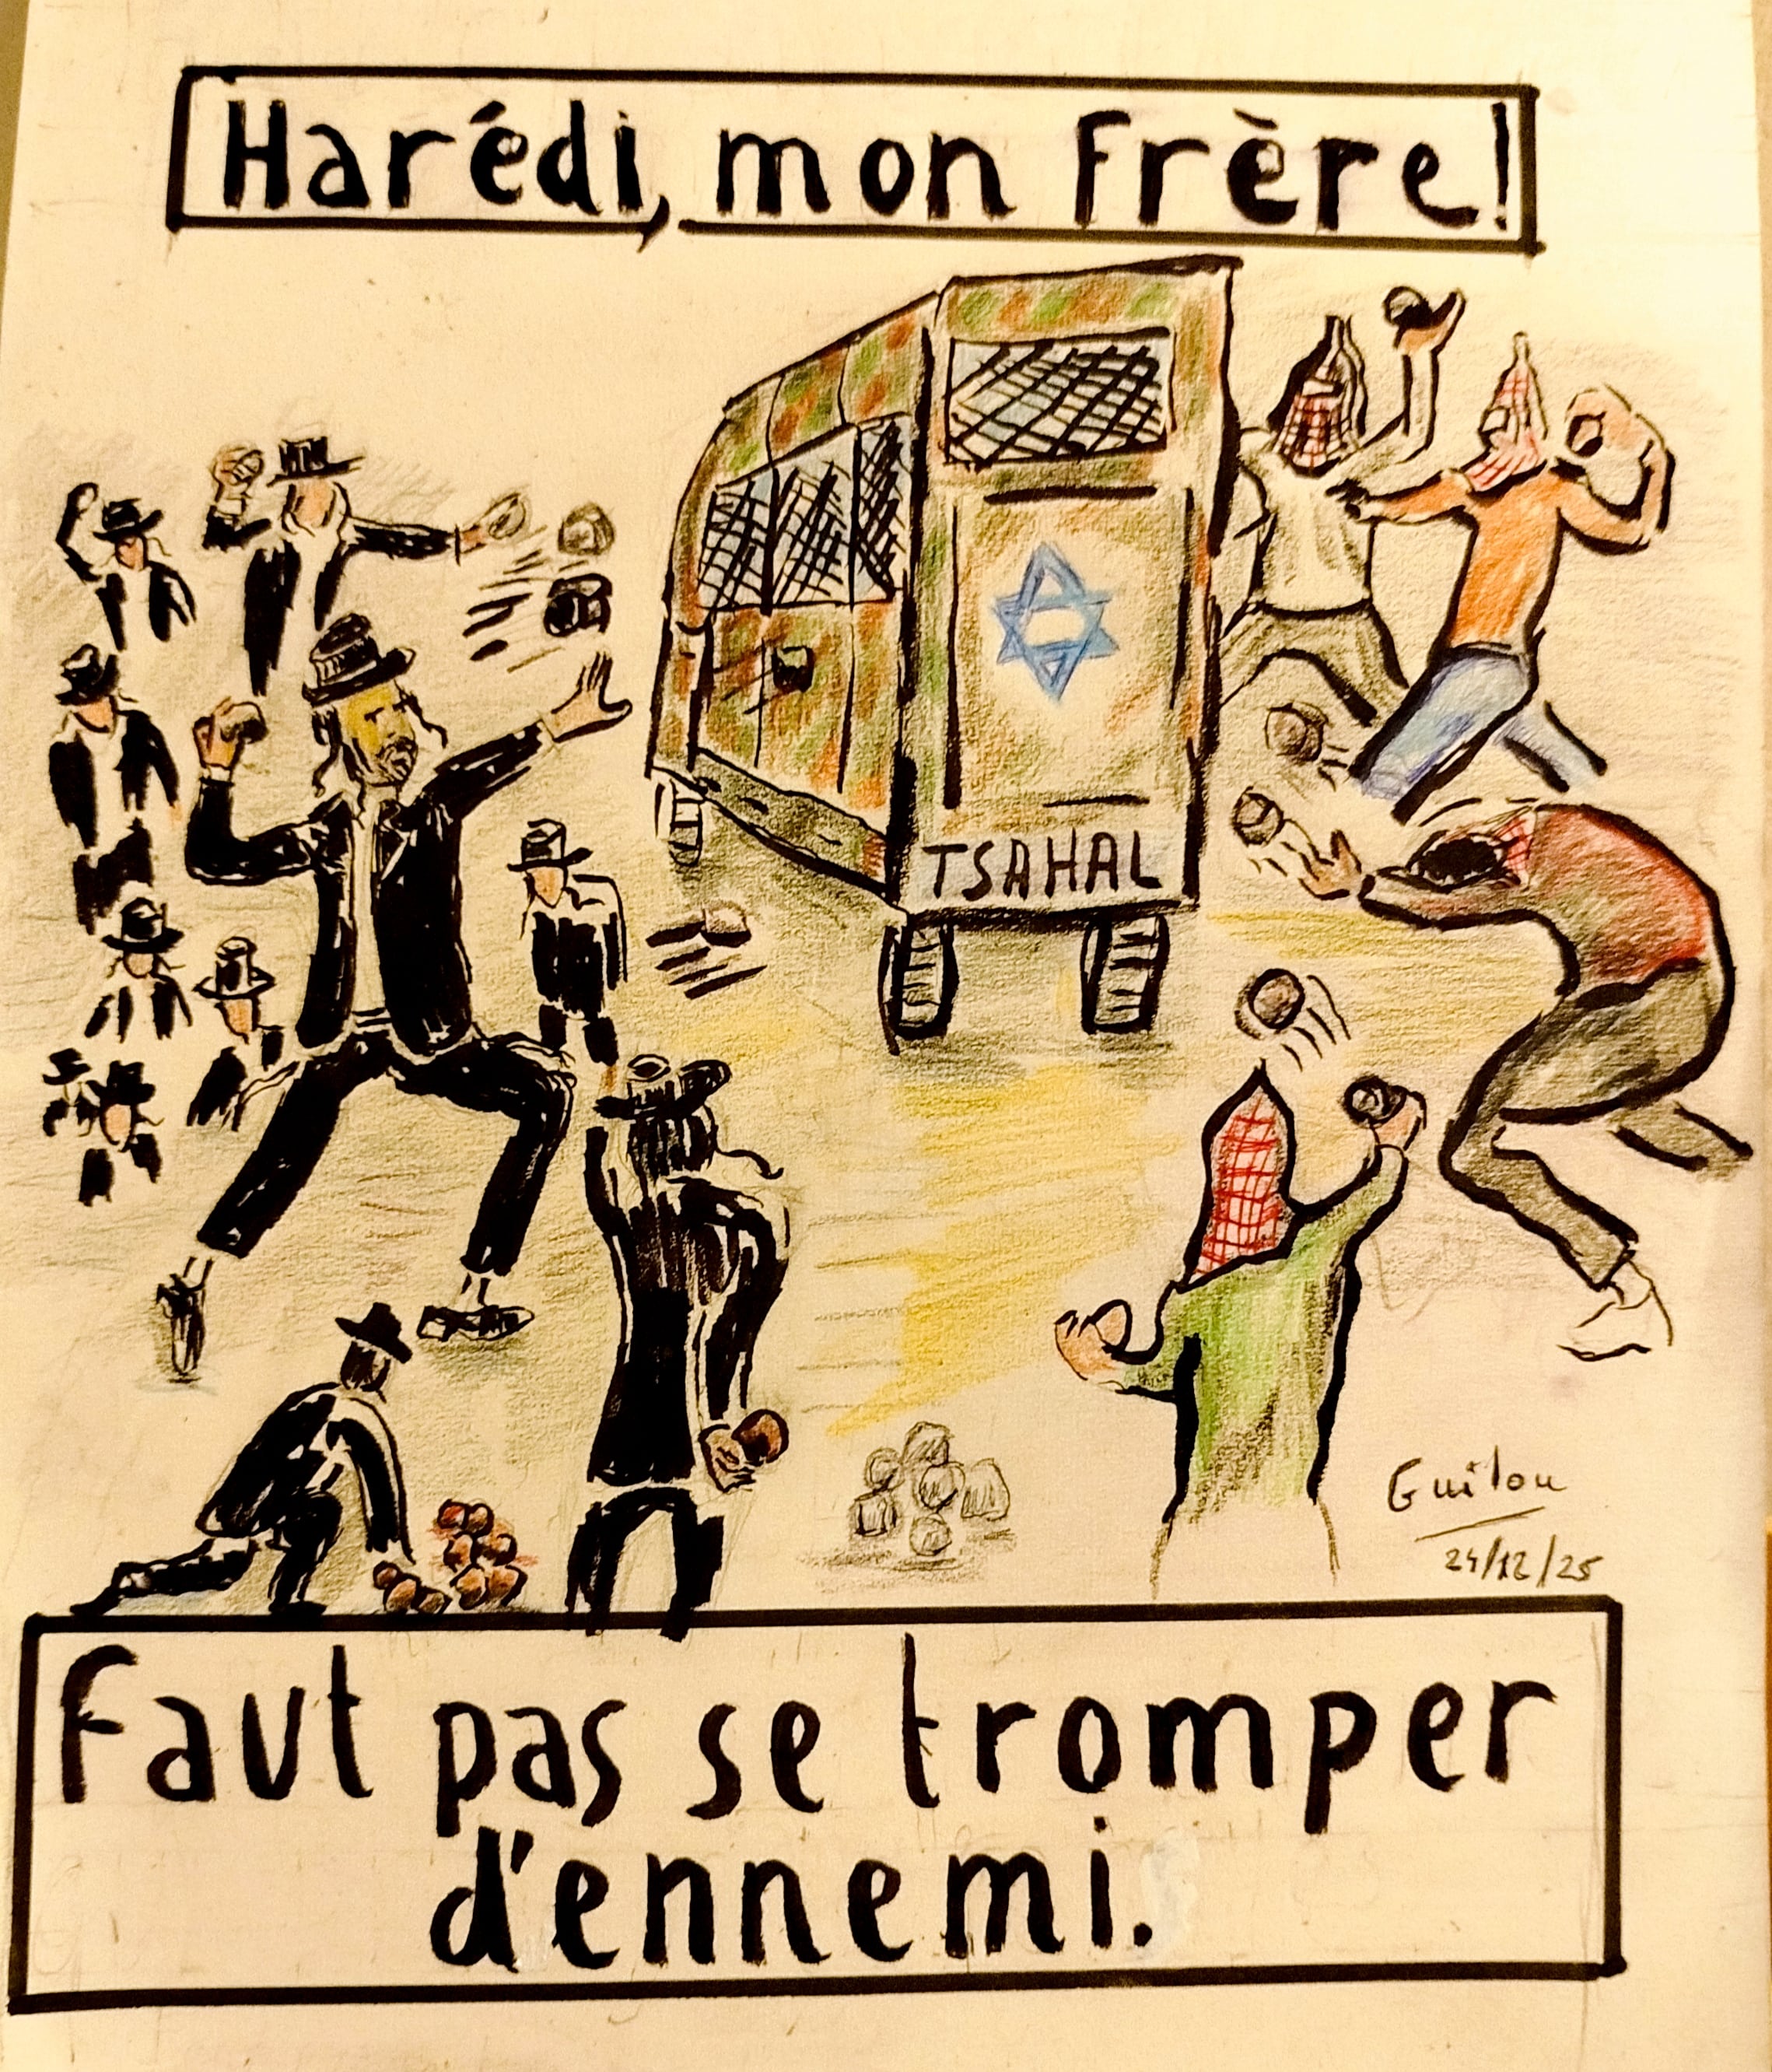 Harédi, mon frère!
TSAHAL
Guilou
24/12/25
Faut pas se tromper
d'ennemi.